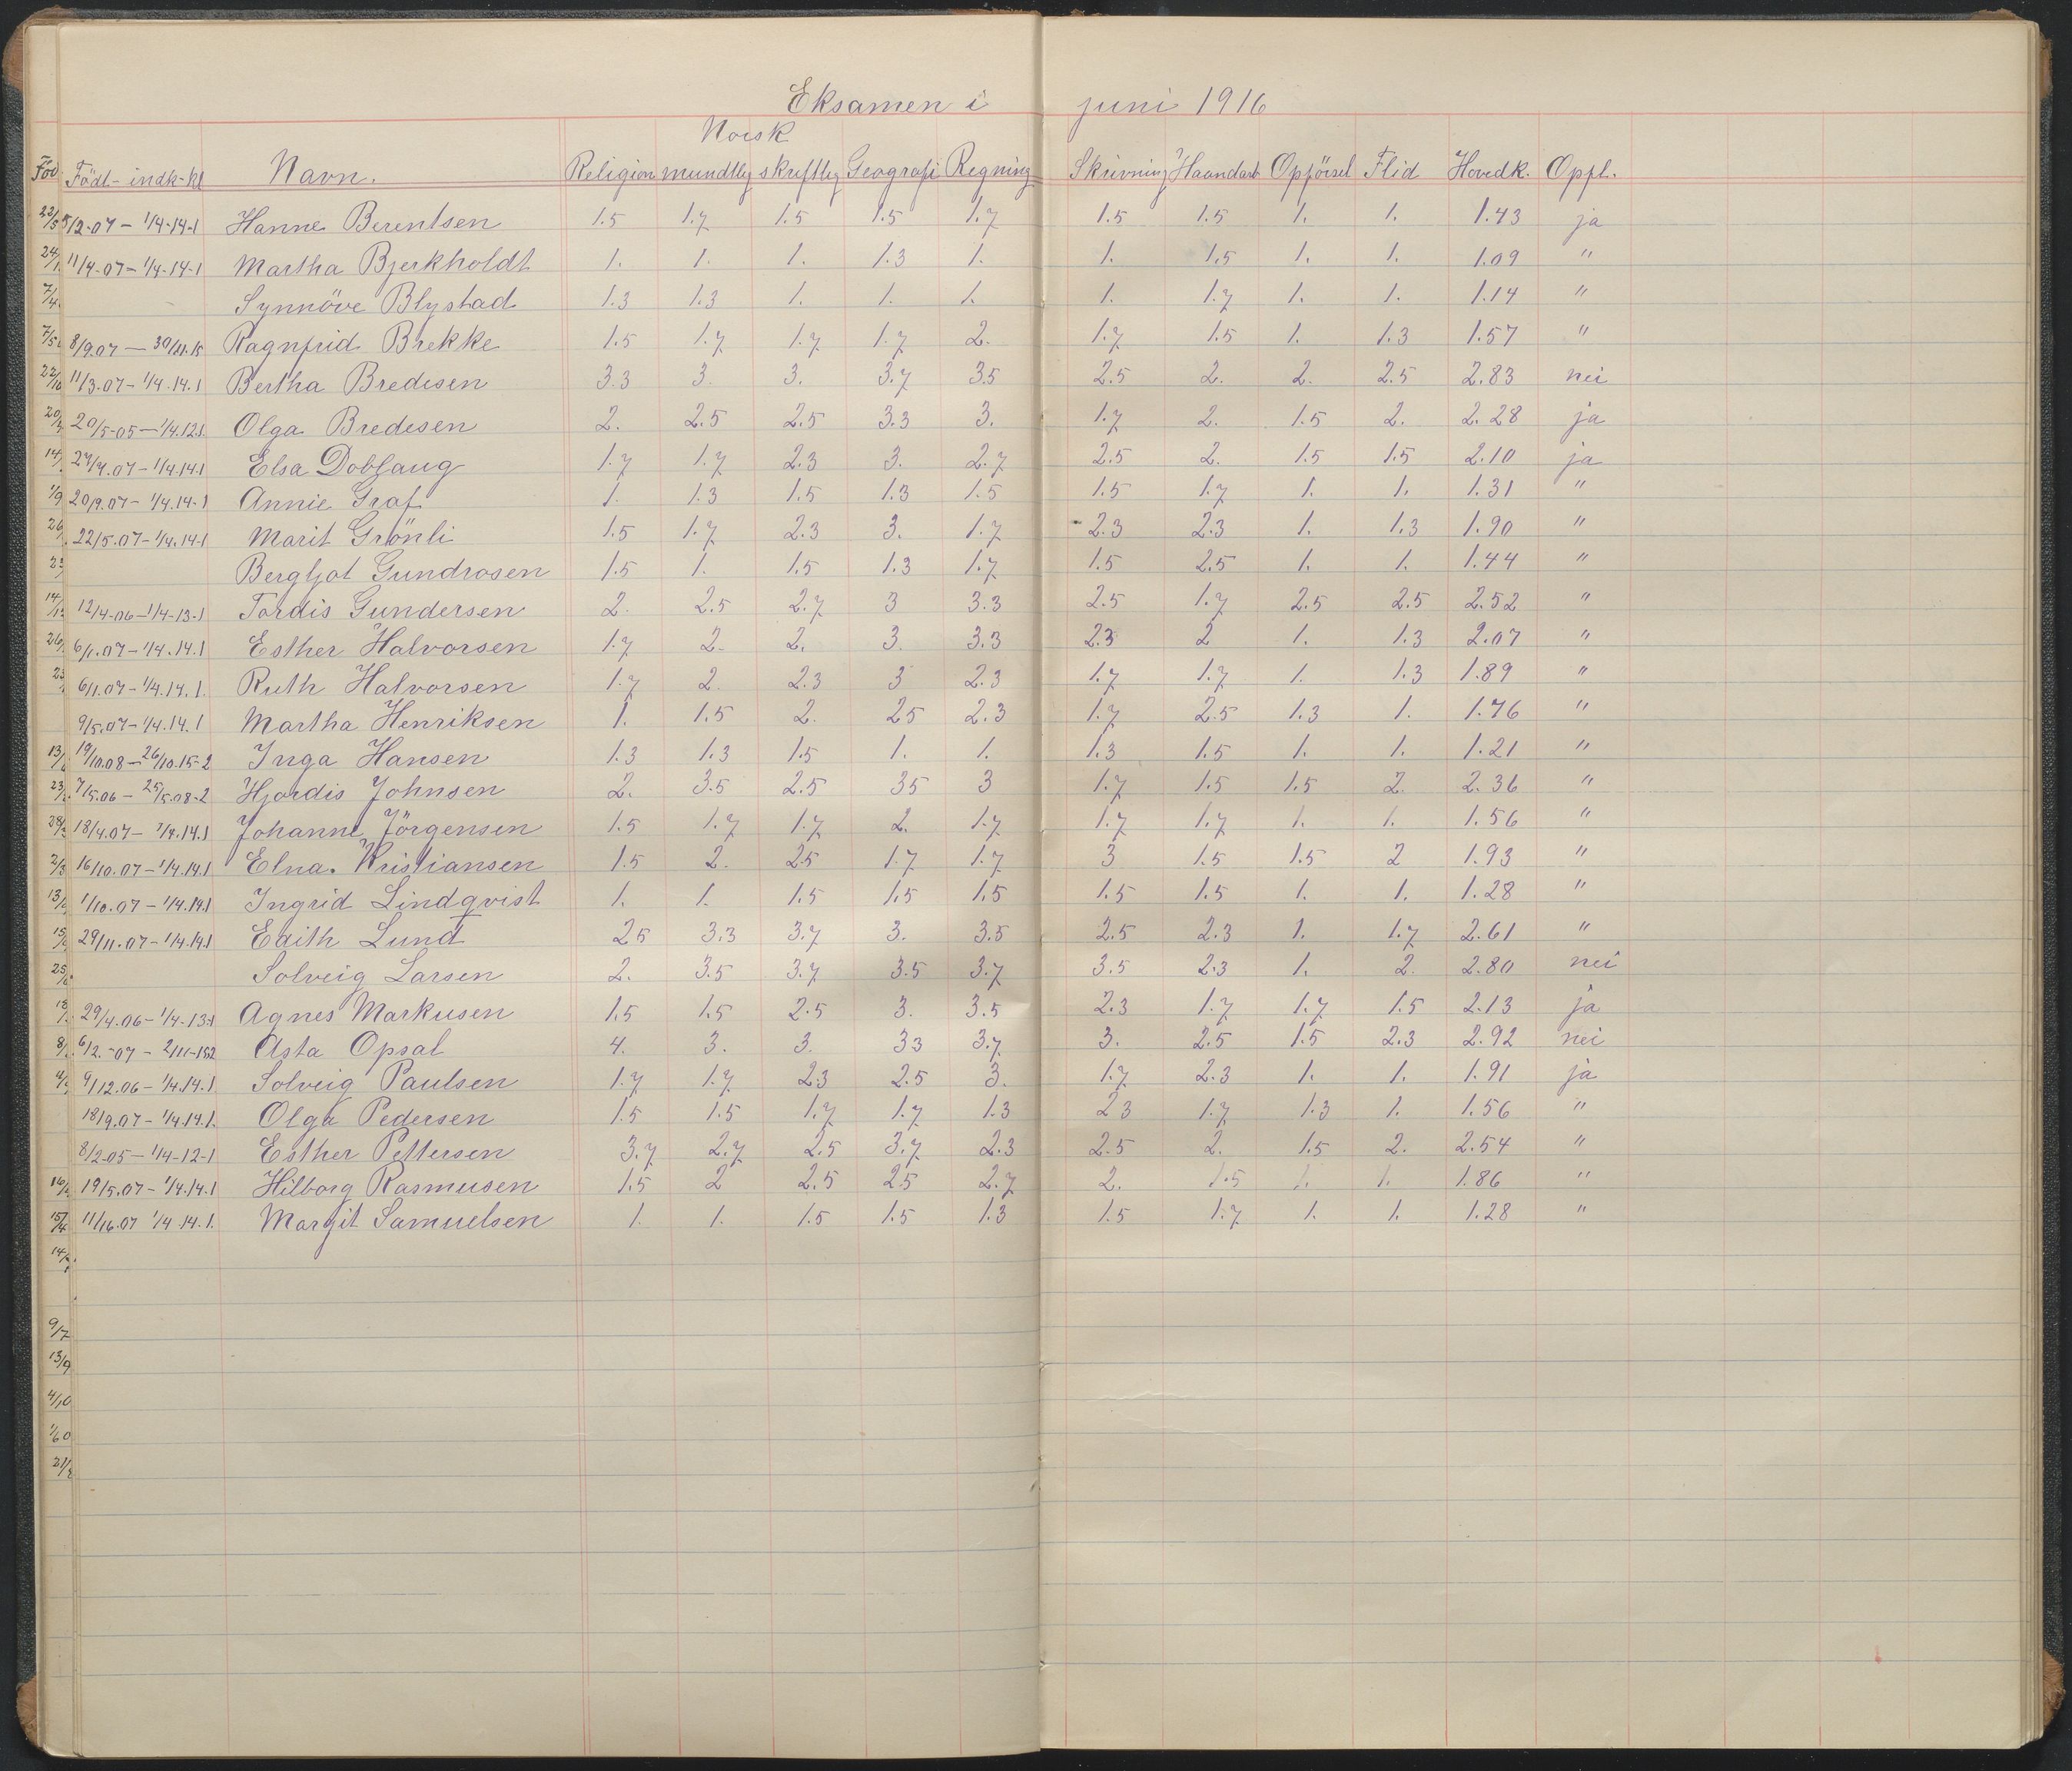 Eksamen i juni 1916
Norsk
Föd Födt- indk-kl Navn. Religion mundtlig skriftlig Geografi Regning Skrivning Haandarb Opförsel Flid Hovedk. Oppl.
5/2-07 - 1/4-14-1 Hanne Berentsen 1.5 1.7 1.5 1.5 1.7 1.5 1.5 1. 1. 1.43 ja
11/4-07 - 1/4-14-1 Martha Bjerkholdt 1. 1. 1. 1.3 1. 1. 1.5 1. 1. 1.09 "
Synnöve Blystad 1.3 1.3 1. 1. 1. 1. 1.7 1. 1. 1.14 "
8/9.07 — 30/11.15 Ragnfrid Brekke 1.5 1.7 1.7 1.7 2. 1.7 1.5 1. 1.3 1.57 "
11/3.07 - 1/4.14.1 Bertha Bredesen 3.3 3. 3. 3.7 3.5 2.5 2. 2. 2.5 2.83 nei
20/5-05 - 1/4.12.1. Olga Bredesen 2. 2.5 2.5 3.3 3. 1.7 2. 1.5 2. 2.28 ja
27/4.07 - 1/4.14.1 Elsa Doblaug 1.7 1.7 2.3 3. 2.7 2.5 2. 1.5 1.5 2.10 ja
20/9.07 - 1/4.14-1 Annie Graf 1. 1.3 1.5 1.3 1.5 1.5 1.7 1. 1. 1.31 "
22/5.07 - 1/4.14-1 Marit Grönli 1.5 1.7 2.3 3. 1.7 2.3 2.3 1. 1.3 1.90 "
Bergljot Gundrosen 1.5 1. 1.5 1.3 1.7 1.5 2.5 1. 1. 1.44 "
12/4-06 - 1/4-13-1 Tordis Gundersen 2. 2.5 2.7 3 3.3 2.5 1.7 2.5 2.5 2.52 "
6/1.07 - 1/4.14.1 Esther Halvorsen 1.7 2. 2. 3. 3.3 2.3 2 1. 1.3 2.07 "
6/1.07 - 1/4.14.1. Ruth Halvorsen 1.7 2. 2.3 3 2.3 1.7 1.7 1. 1.3 1.89 "
9/5.07 - 1/4.14.1 Martha Henriksen 1. 1.5 2. 25 2.3 1.7 2.5 1.3 1. 1.76 "
19/10.08 - 26/10.15-2 Inga Hansen 1.3 1.3 1.5 1. 1. 1.3 1.5 1. 1. 1.21 "
7/5.06 - 25/5.08-2 Hjordis Johnsen 2. 3.5 2.5 35 3 1.7 1.5 1.5 2. 2.36 "
18/4.07 - 1/4.14.1 Johanne Jörgensen 1.5 1.7 1.7 2. 1.7 1.7 1.7 1. 1. 1.56 "
16/10.07 - 1/4.14.1 Elna. Kristiansen 1.5 2. 25 1.7 1.7 3 1.5 1.5 2 1.93 "
1/10.07 - 1/4.14.1 Ingrid Lindqvist 1. 1. 1.5 1.5 1.5 1.5 1.5 1. 1. 1.28 "
29/11.07 - 1/4.14.1 Edith Lund 25 3.3 3.7 3. 3.5 2.5 2.3 1. 1.7 2.61 "
Solveig Larsen 2. 3.5 3.7 3.5 3.7 3.5 2.3 1. 2. 2.80 nei
29/4.06 - 1/4-13-1 Agnes Markusen 1.5 1.5 2.5 3. 3.5 2.3 1.7 1.7 1.5 2.13 ja
6/2.-07 - 2/11-15.2 Asta Opsal 4. 3. 3. 33 3.7 3. 2.5 1.5 2.3 2.92 nei
9/12.06 - 1/4.14.1. Solveig Paulsen 1.7 1.7 23 2.5 3. 1.7 2.3 1. 1. 1.91 ja
18/9.07 - 1/4.14.1. Olga Pedersen 1.5 1.5 1.7 1.7 1.3 23 1.7 1.3 1. 1.56 "
8/2-05 - 1/4-12-1 Esther Pettersen 3.7 2.7 2.5 3.7 2.3 2.5 2. 1.5 2. 2.54 "
19/5.07 - 1/4.14.1 Hilborg Rasmusen 1.5 2 2.5 25 2.7 2. 1.5 1. 1. 1.86 "
11/16.07 1/4.14.1. Margit Samuelsen 1. 1. 1.5 1.5 1.3 1.5 1.7 1. 1. 1.28 "
9/7
13/9
4/10